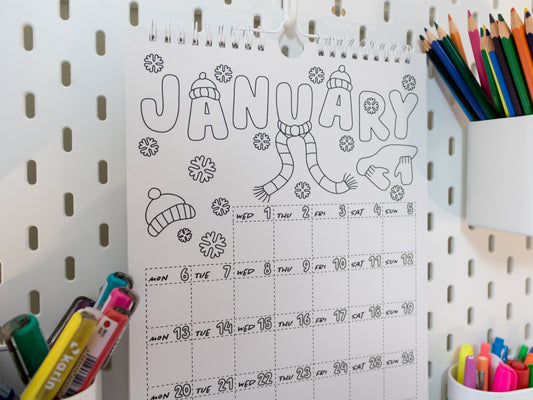 JANUARY
WED 1 THU 2 FRI 3 SAT 4 SUN 5
MON 6 TUE 7 WED 8 THU 9 FRI 10 SAT 11 SUN 12
MON 13 TUE 14 WED 15 THU 16 FRI 17 SAT 18 SUN 19
MON 20 TUE 21 WED 22 THU 23 FRI 24 SAT 25 SUN 26
karin